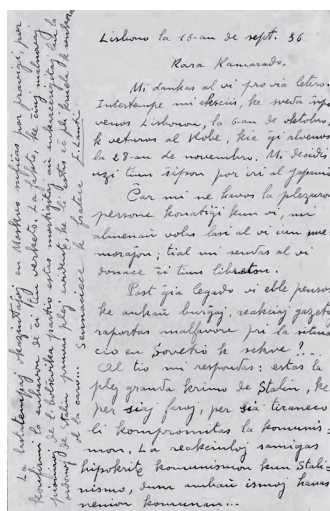 Lisbono la 16-an de sept. 36
Kara Kamarado.
Mi dankas al vi pro via letero.
Intertempe mi eksciis, ke sveda ŝipo
venos Lisbonon, la 6-an de oktobro,
k veturos al Kobe, kie ĝi alvenos
la 28-an de novembro. Mi decidis
uzi tiun ŝipon por iri al Japanio
Ĉar mi ne havos la plezuron
persone konatiĝi kun vi, mi
almenaŭ volas lasi al vi iun me-
moraĵon; tial mi sendas al vi
donace ĉi tiun libreton.
Post ĝia legado vi eble pensos
ke ankaŭ burĝaj, reakciaj gazetoj
raportas malfavore pri la situa-
cio en Sovetio k sekve?...
Al tio mi respondas: estas la
plej granda krimo de Stalin, ke
per siaj faroj, per sia tiraneco
li kompromitas la komunis-
mon. La reakciuloj samigas
hipokrite komunismon kun Stali-
nismo, dum ambaŭ ismoj havas
nenion komunan...
La ĵustempaj okazintaĵoj en Moskvo sufiĉas por pravigi, por
konfirmi la enhavon de ĉi tiu verketo. La fakto, ke ĉiuj malnovaj
pioniroj de l' bolŝevika partio estas mortigitaj aŭ enkarcerigitaj laŭ la
ordonoj de Stalin pruvas plej evidente, ke li estas eĉ pli kruela k ambicia
ol la caro... Sennaciece k fratece